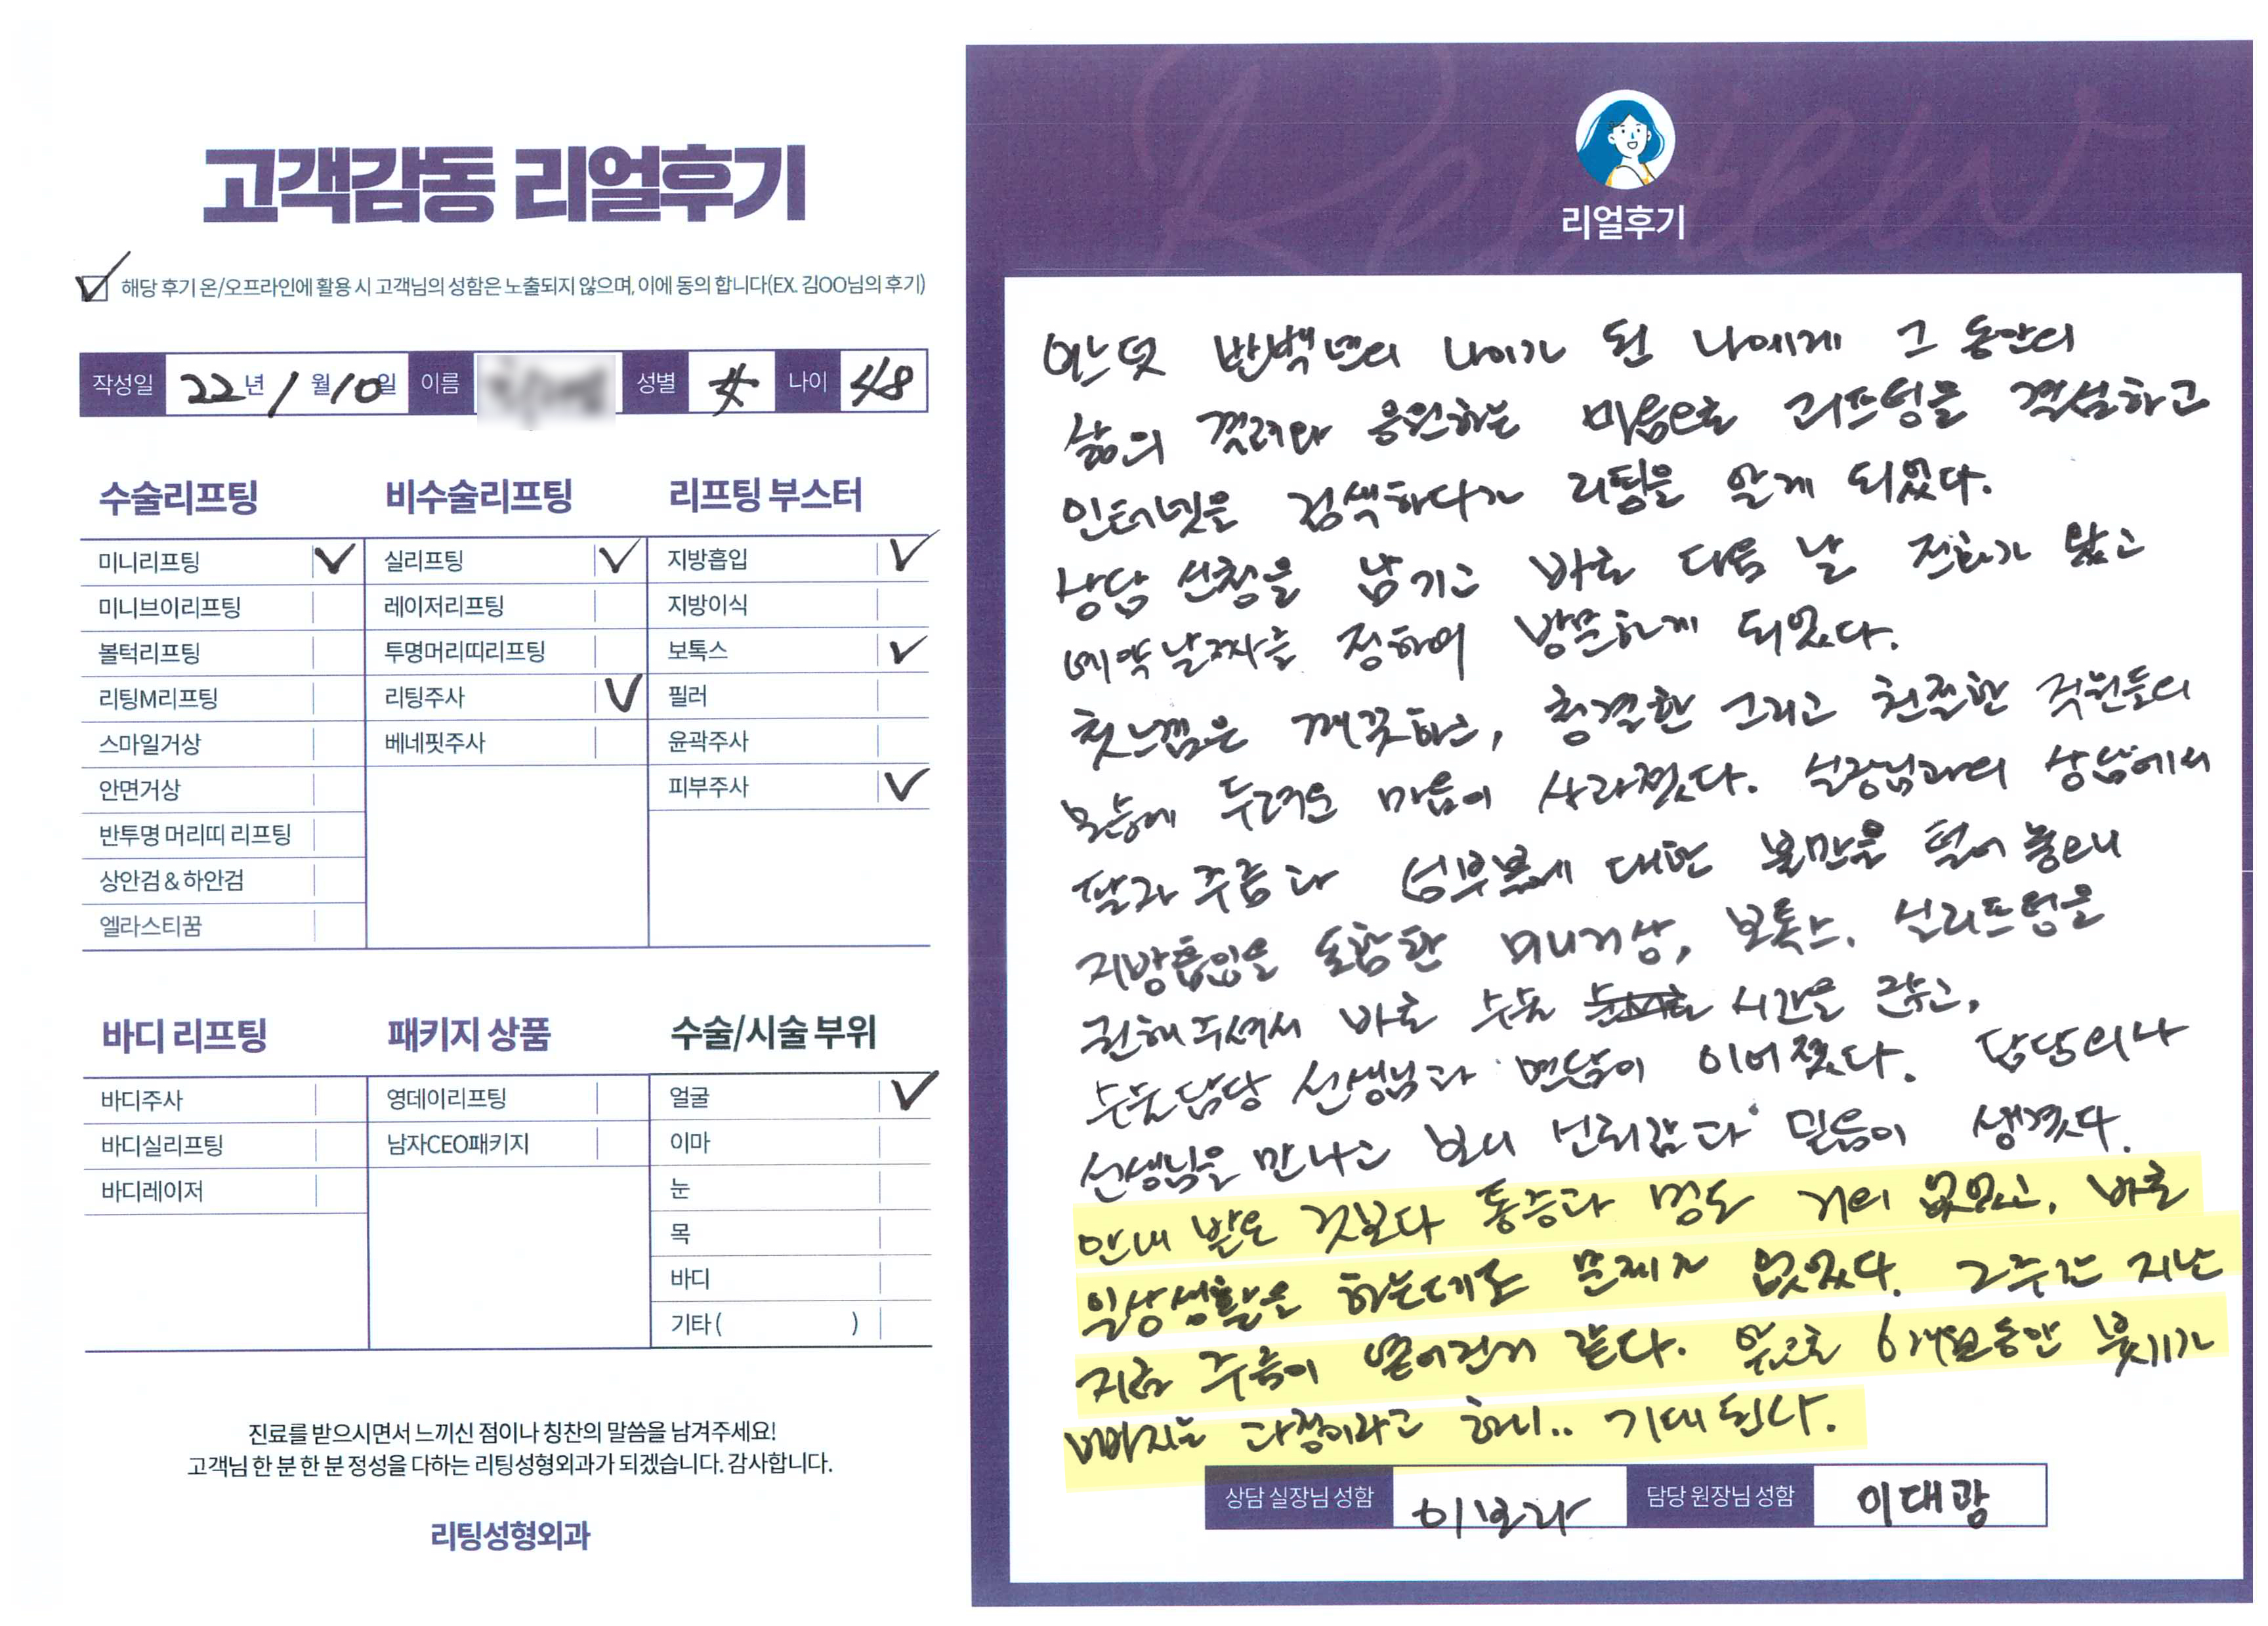 고객감동 리얼후기
해당 후기 온/오프라인에 활용 시 고객님의 성함은 노출되지 않으며, 이에 동의 합니다(EX. 김OO님의 후기)
작성일 22년 1월 10일 이름 성별 나이 48
수술리프팅
미니리프팅
미니브이리프팅
볼턱리프팅
리팅M리프팅
스마일거상
안면거상
반투명 머리띠 리프팅
상안검 & 하안검
엘라스티꿈
비수술리프팅
실리프팅
레이저리프팅
투명머리띠리프팅
리팅주사
베네핏주사
리프팅 부스터
지방흡입
지방이식
보톡스
필러
윤곽주사
피부주사
바디 리프팅
바디주사
바디실리프팅
바디레이저
패키지 상품
영데이리프팅
남자CEO패키지
수술/시술 부위
얼굴
이마
눈
목
바디
기타( )
진료를 받으시면서 느끼신 점이나 칭찬의 말씀을 남겨주세요!
고객님 한 분 한 분 정성을 다하는 리팅성형외과가 되겠습니다. 감사합니다.
리팅성형외과
Review
리얼후기
반백년의 나이가 된 나에게 그 동안의
삶의 격려와 응원하는 마음으로 리프팅을 결심하고
인터넷을 검색하다가 리팅을 알게 되었다.
상담 신청을 남기고 바로 다음 날 전화가 왔고
예약날짜를 정하여 방문하게 되었다.
첫느낌은 깨끗하고, 청결한 그리고 친절한 직원들의
모습에 두려운 마음이 사라졌다. 실장님과의 상담에서
팔자주름과 심부볼에 대한 불만을 털어 놓으니
지방흡입을 포함한 미니거상, 보톡스, 실리프팅을
권해주셔서 바로 수술 시간을 잡고,
수술담당 선생님과 면담이 이어졌다. 담당의사
선생님을 만나고 보니 신뢰감과 믿음이 생겼다.
안내 받은 것보다 통증과 멍도 거의 없었고, 바로
일상생활을 하는데도 문제가 없었다. 2주간 지난
지금 주름이 옅어진거 같다. 앞으로 6개월동안 붓기가
빠지는 과정이라고 하니.. 기대된다.
상담 실장님 성함 이보라 담당 원장님 성함 이대광